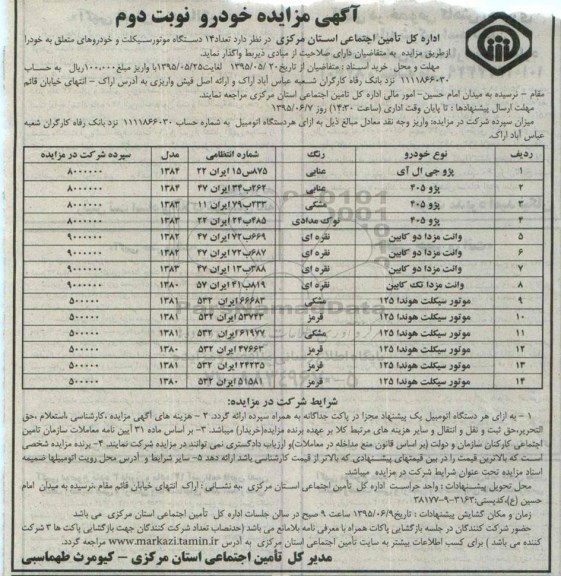 آگهی مزایده خودرو نوبت دوم
اداره کل تأمین اجتماعی استان مرکزی در نظر دارد تعداد۱۴ دستگاه موتورسیکلت و خودروهای متعلق به خودرا
ازطریق مزایده به متقاضیان دارای صلاحیت از مبادی ذیربط واگذار نماید.
مهلت و محل خرید اسناد : متقاضیان از تاریخ ۱۳۹۵/۰۵/۲۰ لغایت۱۳۹۵/۰۵/۲۵با واریز مبلغ۱۰۰,۰۰۰ریال به حساب
۱۱۱۱۸۶۶۰۳۰ نزد بانک رفاه کارگران شعبه عباس آباد اراک و ارائه اصل فیش واریزی به آدرس اراک - انتهای خیابان قائم
مقام - نرسیده به میدان امام حسین- امور مالی اداره کل تامین اجتماعی استان مرکزی مراجعه نمایند.
مهلت ارسال پیشنهادها : تا پایان وقت اداری (ساعت ۱۴:۳۰) روز ۱۳۹۵/۰۶/۷
میزان سپرده شرکت در مزایده: واریز وجه نقد معادل مبالغ ذیل به ازای هردستگاه اتومبیل به شماره حساب ۱۱۱۱۸۶۶۰۳۰ نزد بانک رفاه کارگران شعبه
عباس آباد اراک.
ردیف نوع خودرو رنگ شماره انتظامی مدل سپرده شرکت در مزایده
۱ پژو جی ال آی عنابی ۸۷۵س۱۵ ایران ۲۲ ۱۳۸۴ ۸۰۰۰۰۰۰
۲ پژو ۴۰۵ عنابی ۲۶۲ب۳۴ ایران ۴۷ ۱۳۸۴ ۸۰۰۰۰۰۰
۳ پژو ۴۰۵ مشکی ۲۳۲ب۷۹ ایران ۱۱ ۱۳۸۳ ۸۰۰۰۰۰۰
۴ پژو ۴۰۵ نوک مدادی ۴۸۵ب۲۴ ایران ۲۲ ۱۳۸۳ ۸۰۰۰۰۰۰
۵ وانت مزدا دو کابین نقره ای ۶۶۹ب۷۲ ایران ۴۷ ۱۳۸۲ ۹۰۰۰۰۰۰
۶ وانت مزدا دو کابین نقره ای ۶۸۷ب۷۲ ایران ۴۷ ۱۳۸۲ ۹۰۰۰۰۰۰
۷ وانت مزدا دو کابین نقره ای ۳۸۸ب۱۳ ایران ۴۷ ۱۳۸۳ ۹۰۰۰۰۰۰
۸ وانت مزدا تک کابین نقره ای ۸۱۹ب۴۱ ایران ۵۷ ۱۳۸۰ ۹۰۰۰۰۰۰
۹ موتور سیکلت هوندا ۱۲۵ مشکی ۶۶۶۸۳ایران ۵۳۲ ۱۳۸۱ ۵۰۰۰۰۰
۱۰ موتور سیکلت هوندا ۱۲۵ قرمز ۵۳۷۴۳ ایران ۵۳۲ ۱۳۸۱ ۵۰۰۰۰۰
۱۱ موتور سیکلت هوندا ۱۲۵ مشکی ۲۶۱۹۷۷ایران ۵۳۲ ۱۳۸۱ ۵۰۰۰۰۰
۱۲ موتور سیکلت هوندا ۱۲۵ قرمز ۴۷۶۶۲ ایران ۵۳۲ ۱۳۸۰ ۵۰۰۰۰۰
۱۳ موتور سیکلت هوندا ۱۲۵ قرمز ۲۴۲۳۵ ایران ۵۳۲ ۱۳۸۱ ۵۰۰۰۰۰
۱۴ موتور سیکلت هوندا ۱۲۵ قرمز ۵۱۵۸۱ ایران ۵۳۲ ۱۳۸۰ ۵۰۰۰۰۰
شرایط شرکت در مزایده:
۱ - به ازای هر دستگاه اتومبیل یک پیشنهاد مجزا در پاکت جداگانه به همراه سپرده ارائه گردد. ۲ - هزینه های آگهی مزایده ،کارشناسی ،استعلام ،حق
التحریر،حق ثبت و نقل و انتقال و سایر هزینه های مرتبط کلا بر عهده برنده مزایده(خریدار) میباشد. ۳- بر اساس ماده ۳۱ آیین نامه معاملات سازمان تامین
اجتماعی کارکنان سازمان و دولت (بر اساس قانون منع مداخله در معاملات)و ارزیاب دادگستری نمی توانند در مزایده شرکت نمایند. ۴- برنده مزایده شخصی
است که بالاترین قیمت را در بین قیمتهای پیشنهادی که بالاتر از قیمت کارشناسی باشد ارائه دهد ۵- سایر شرایط و آدرس محل رویت اتومبیلها ضمیمه
اسناد مزایده تحت عنوان شرایط شرکت در مزایده میباشد.
محل تحویل پیشنهادات : واحد حراست اداره کل تأمین اجتماعی استان مرکزی به نشانی : اراک انتهای خیابان قائم مقام ،نرسیده به میدان امام
حسین (ع)،کدپستی:۳۱۶۳-۳۸۱۷۷۰۹
زمان و مکان گشایش پیشنهادات : تاریخ۱۳۹۵/۰۶/۹ ساعت ۹ صبح در سالن جلسات اداره کل تأمین اجتماعی استان مرکزی می باشد
حضور شرکت کنندگان در جلسه بازگشایی پاکات همراه با معرفی نامه بلامانع می باشد (حدنصاب تعداد شرکت کنندگان جهت بازگشایی پاکات ها ۳ شرکت
کننده می باشد ) برای کسب اطلاعات بیشتر به سایت تأمین اجتماعی استان مرکزی به آدرس www.markazi.tamin.ir مراجعه گردد.
مدیر کل تأمین اجتماعی استان مرکزی - کیومرث طهماسبی